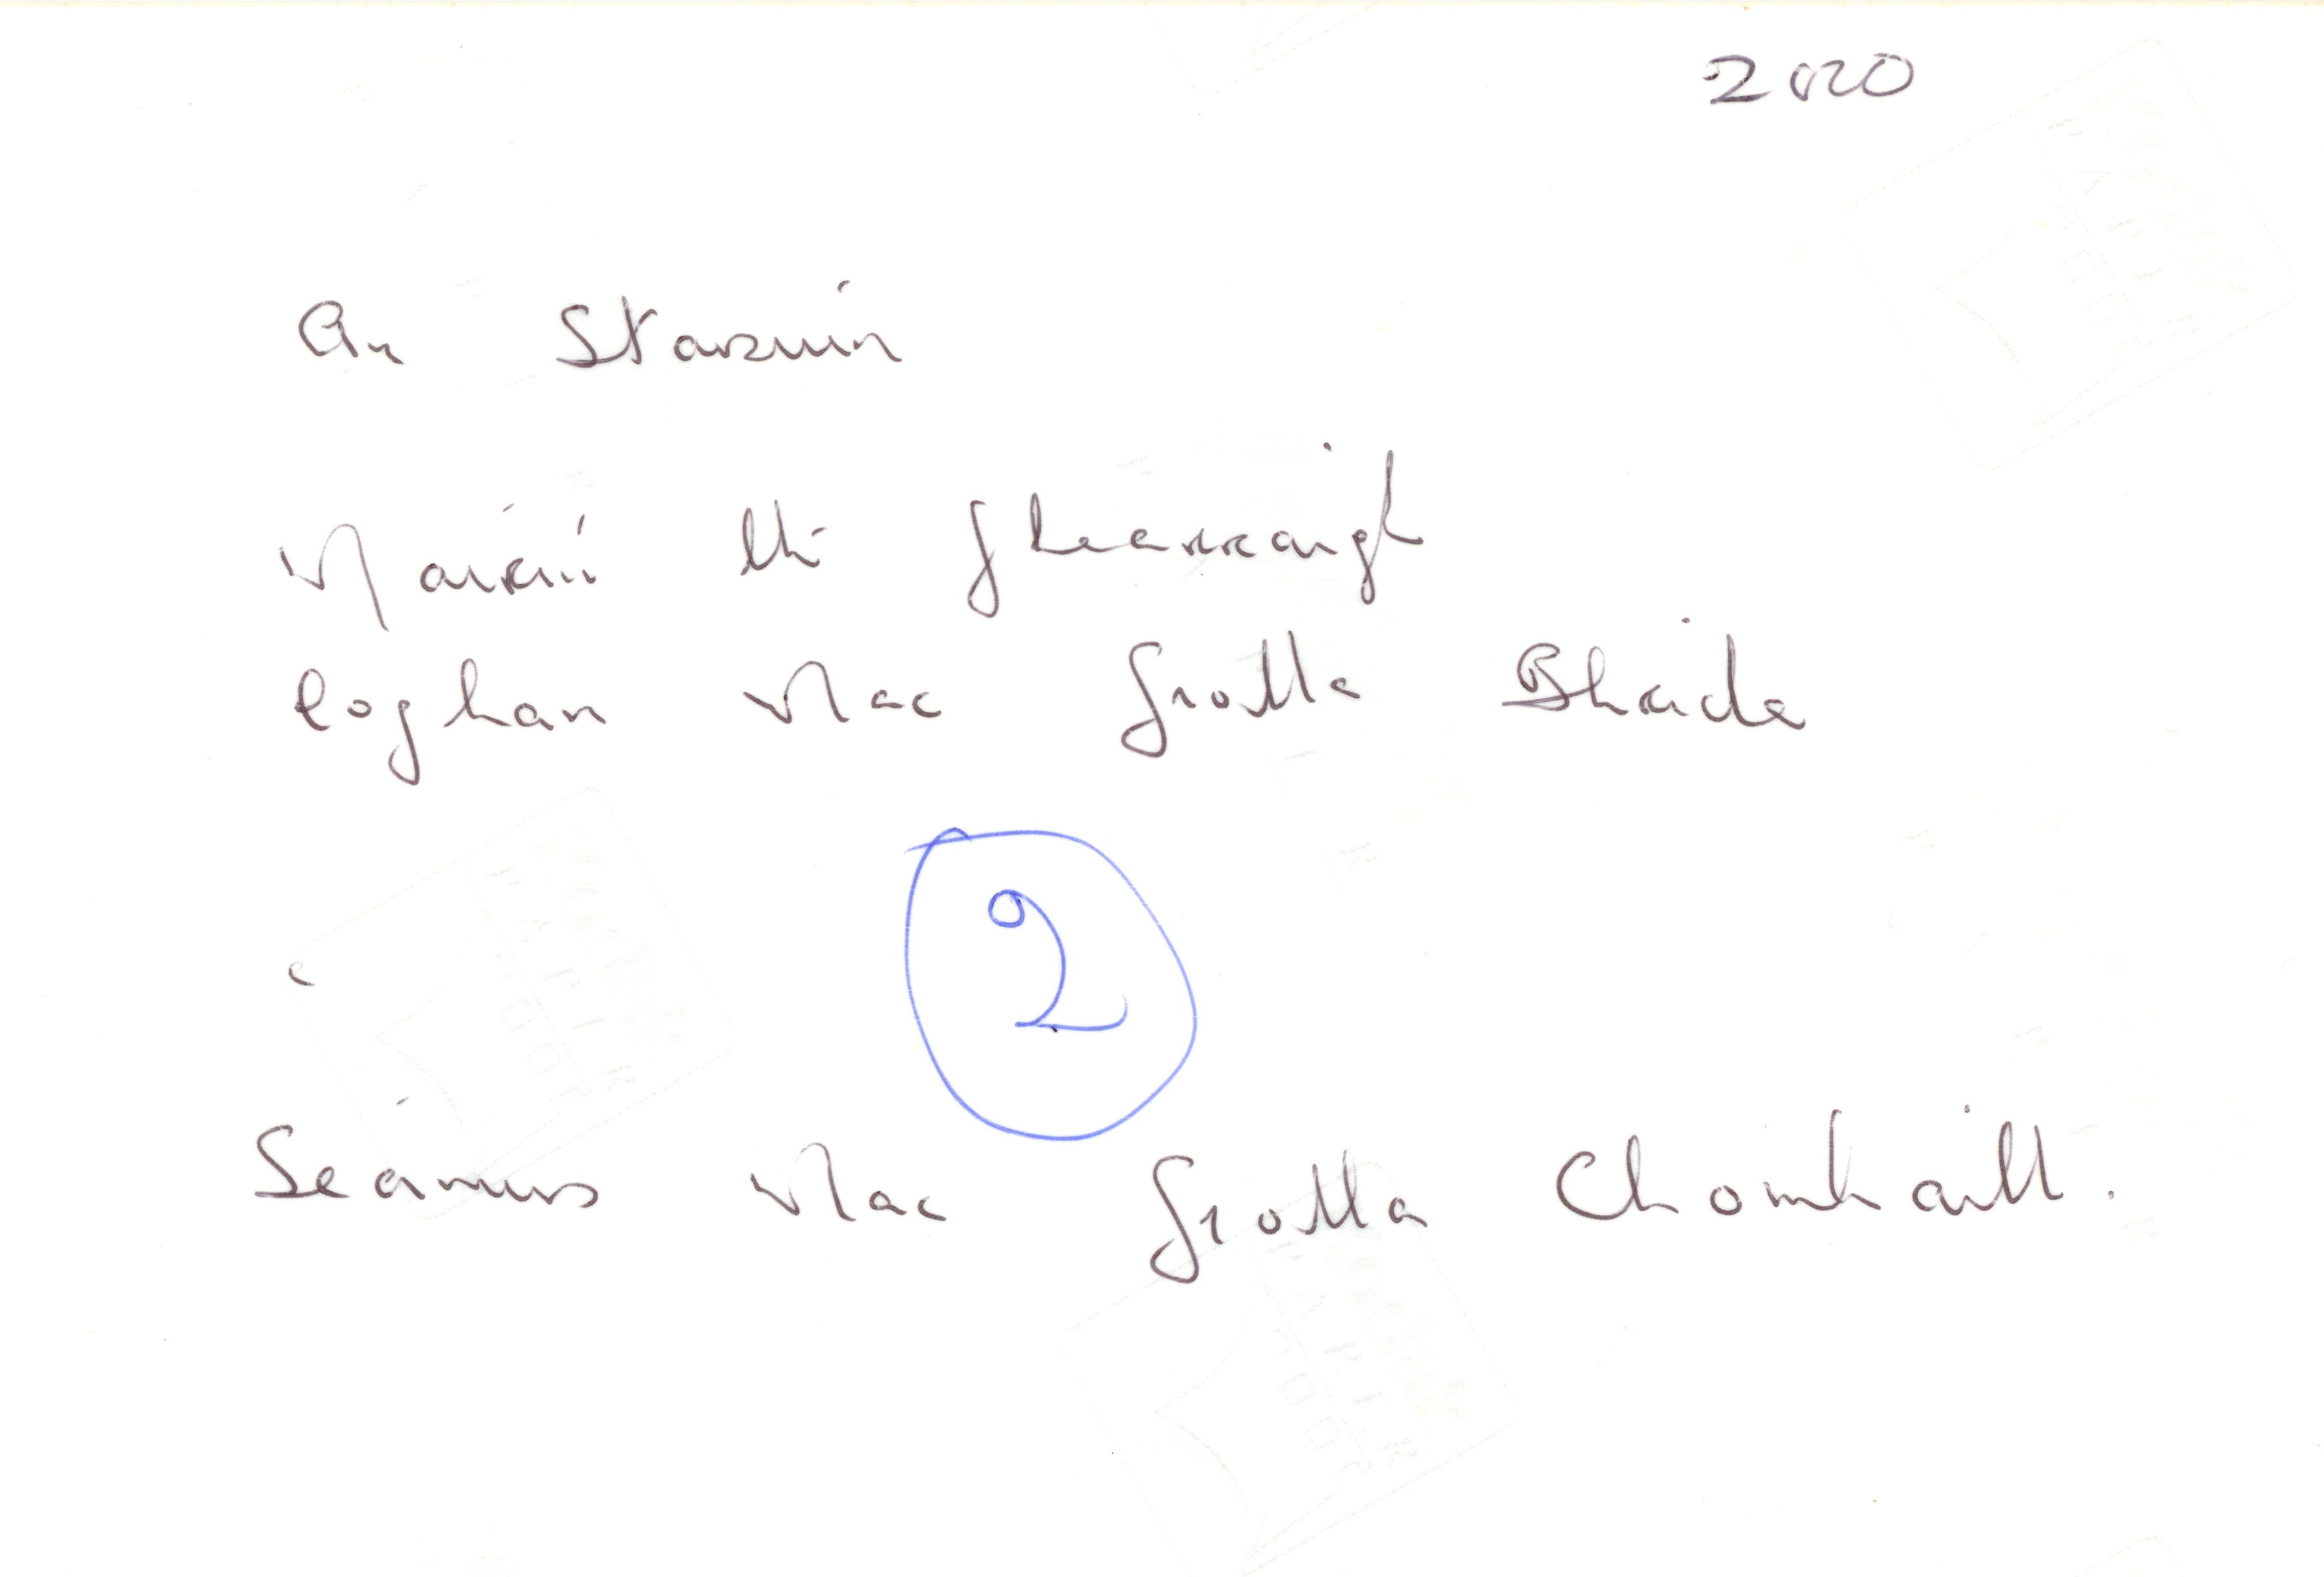 2020
An Starruin
Máirín Uí Ghearraigh
Eoghan Mac Giolla Bhríde
2
Séamus Mac Giolla Chomhaill.